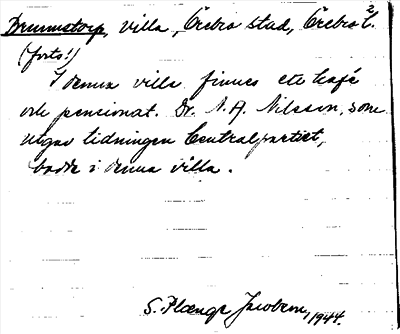 Brunnstorp, villa, Örebro stad, Örebro l. 2
(forts!)
I denna villa finnes ett kafé
och pensionat. Dr. N. A. Nilsson, som
utgav tidningen Centralpartiet,
bodde i denna villa.
S. Plænge Jacobson, 1944.